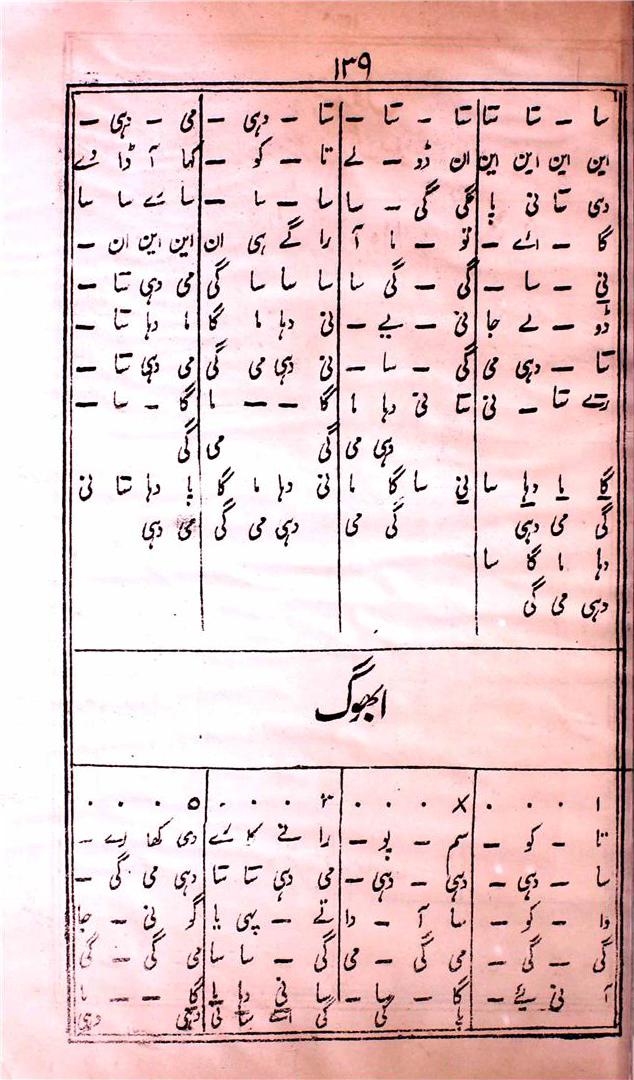 ۱۳۹
سا – تا تا تا – تا – تا – دہی – می – دہی –
این این این این ان ڈو – لے تا – کو – کہا آ ڈا دے
دی تا نی پا گی گی – سا سا – سا – سا ے سا سا
گا – اے – تو – ما آ را گے ہی ان این این ان –
نی – سا – گی – گی سا سا سا سا گی می دہی تا –
ڈو – لے جا نی – یے – نی دہا ما گا ما دہا تا –
تا – دہی می گی – سا – نی دہی می گی می دہی تا –
رتے تا – نی تا نی دہا ما گا – – ما گا – سا –
دہی می گی می گی
گا ما دہا سا نی سا گا ما نی دہا ما گا پا دہا تا نی
گی می دہی گی می دہی می گی می دہی
دہا ما گا سا
دہی می گی
ابھوگ
۱ ۰ ۰ ۰ × ۰ ۰ ۰ ۳ ۰ ۰ ۰ ۵ ۰ ۰ ۰
تا – کو – سم – پو – را نے کا ے دی کھا رے –
سا – دہی – دہی – دہی – می دہی تا تا دہی می گی –
دا – کو – سا آ – دا تے – پہی یا گو نی – جا
گی – گی – می گی – می گی – سا سا می گی – گی
آ نی ئے – گا – سا – سا نی دہا پا گا – – ما
پا گی گی